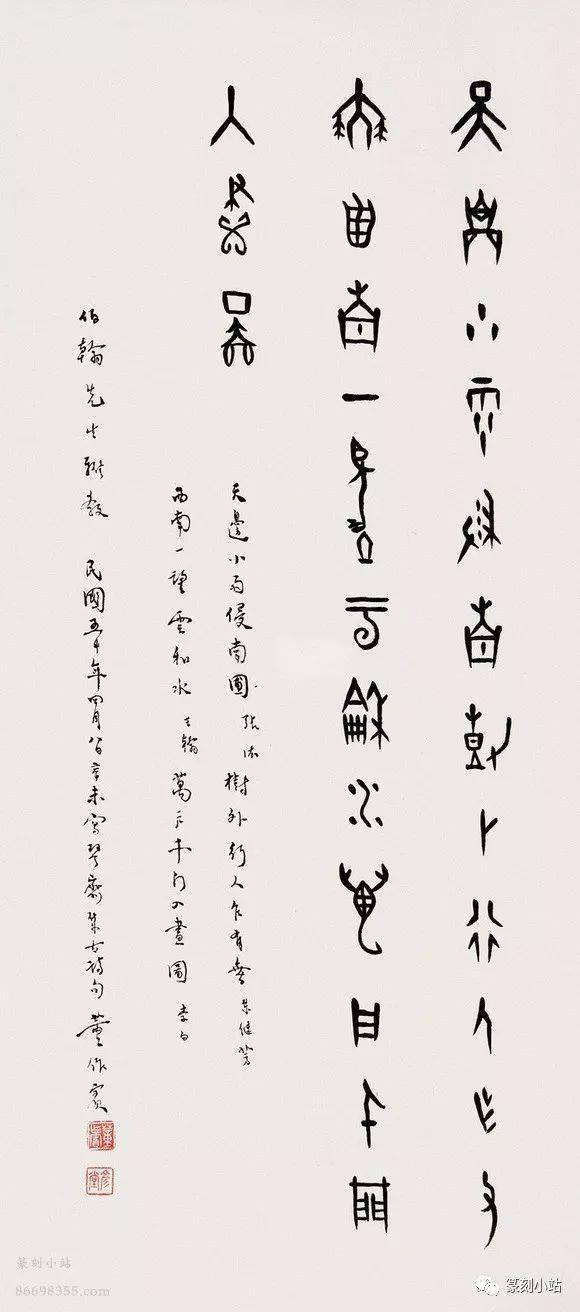 天邊小雨侵南樹外行人乍有
無西南一望云和水萬戶千門
入畫圖
天邊小雨侵南圃 張 樹外行人乍有無 朱繼芳
西南一望雲和水 王翰 萬戶千門入畫圖 李白
伯翰先生雅教 民國五十年四月八日辛未寫琴齋集古詩句 董作賓
彥堂
篆刻小站
86698355.com
篆刻小站